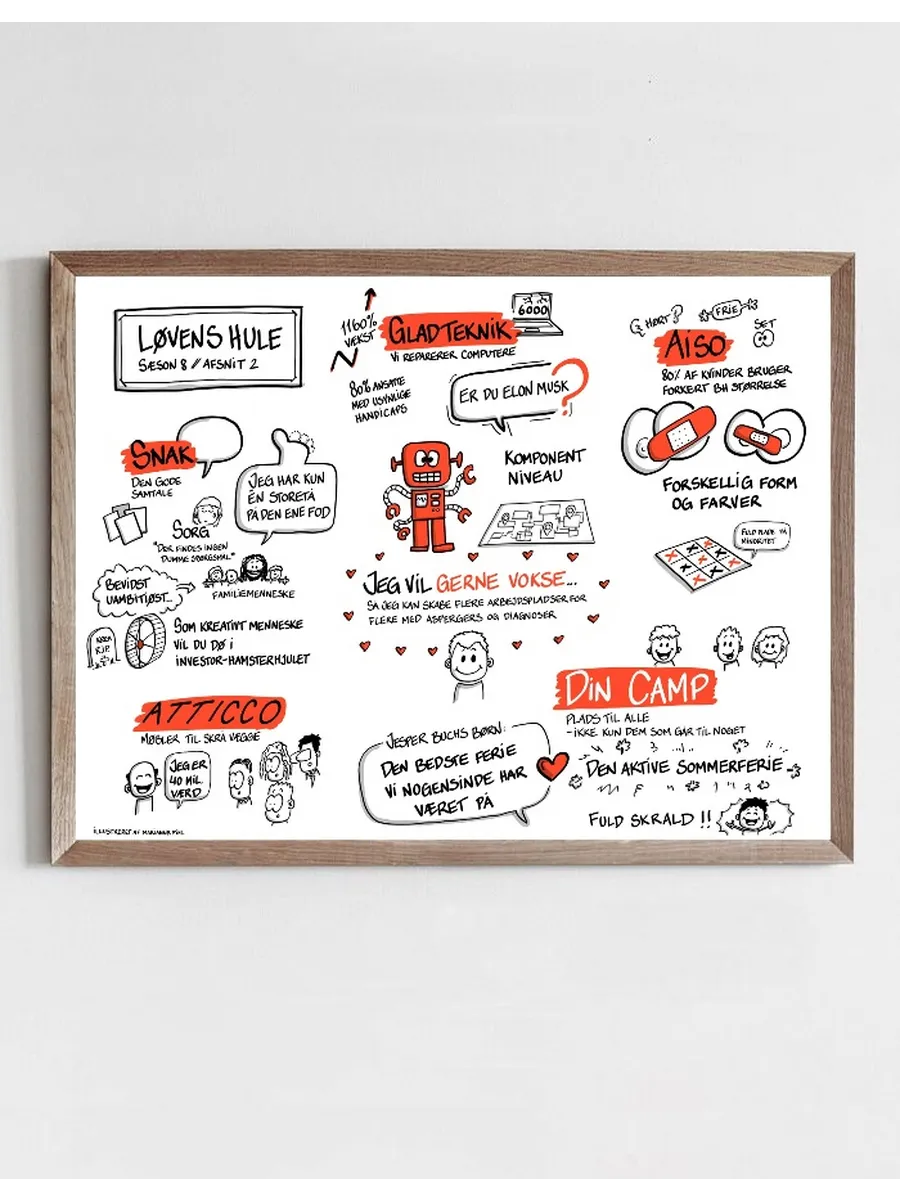 LØVENS HULE
SÆSON 8 // AFSNIT 2
1160%
VÆKST
GLADTEKNIK
VI REPARERER COMPUTERE
6000
80% ANSATTE
MED USYNLIGE
HANDICAPS
ER DU ELON MUSK
?
KOMPONENT
NIVEAU
JEG VIL GERNE VOKSE...
SÅ JEG KAN SKABE FLERE ARBEJDSPLADSER FOR
FLERE MED ASPERGERS OG DIAGNOSER
HØRT?
FRIE
SET
AISO
80% AF KVINDER BRUGER
FORKERT BH STØRRELSE
FORSKELLIG FORM
OG FARVER
FULD PLADE PÅ
MINORITET
SNAK
DEN GODE
SAMTALE
JEG HAR KUN
ÉN STORETÅ
PÅ DEN ENE FOD
SORG
"DER FINDES INGEN
DUMME SPØRGSMÅL"
FAMILIEMENNESKE
BEVIDST
UAMBITIØST...
R.I.P.
SOM KREATIVT MENNESKE
VIL DU DØ I
INVESTOR-HAMSTERHJULET
ATTICCO
MØBLER TIL SKRÅ VÆGGE
JEG ER
40 MIL.
VÆRD
JESPER BUCHS BØRN:
DEN BEDSTE FERIE
VI NOGENSINDE HAR
VÆRET PÅ
DIN CAMP
PLADS TIL ALLE
-IKKE KUN DEM SOM GÅR TIL NOGET
DEN AKTIVE SOMMERFERIE
FULD SKRALD !!
ILLUSTRERET AF